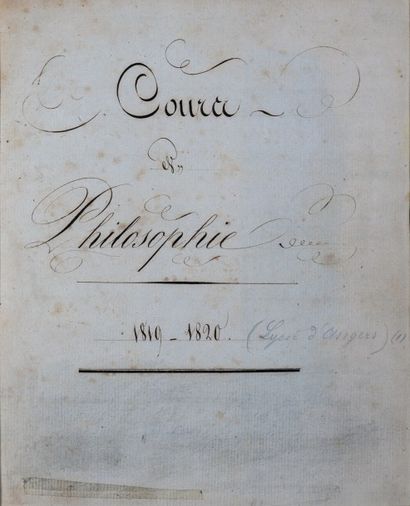 Cours
de
Philosophie
1819 – 1820. (Lycée d'Angers) (1)